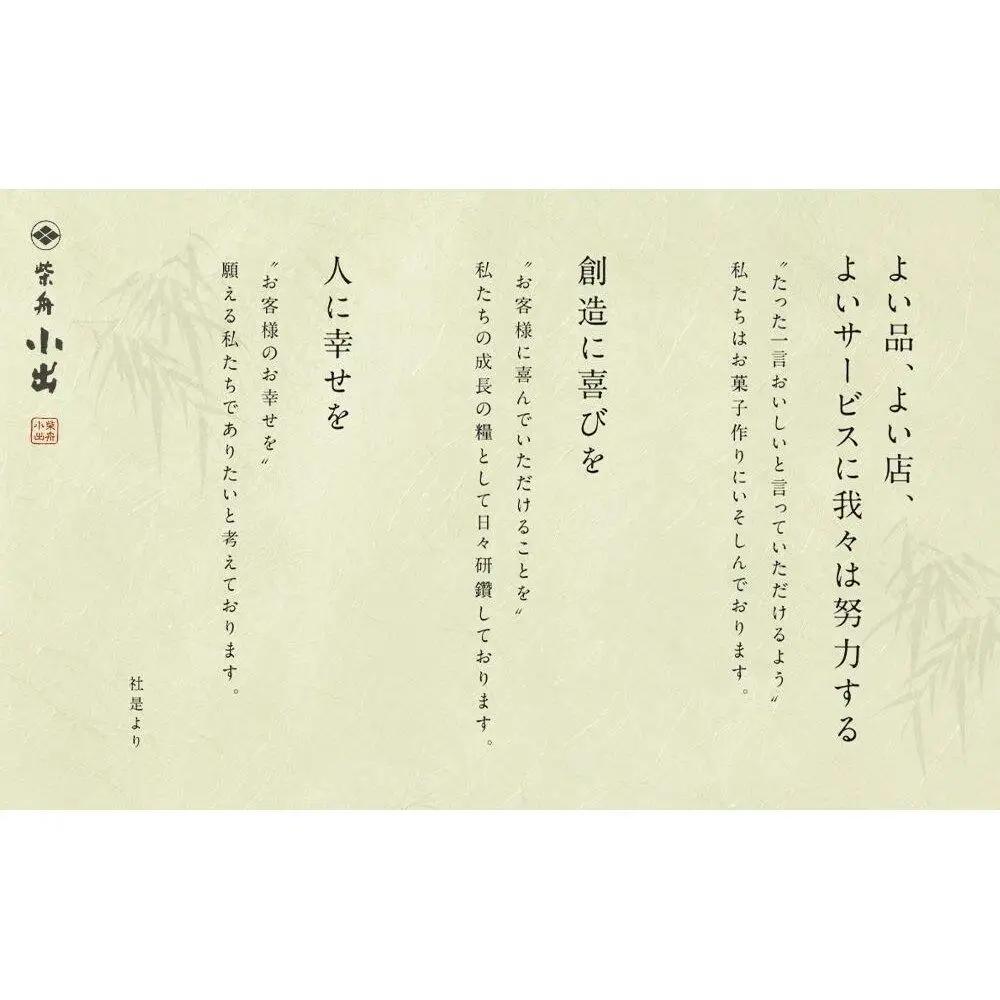 よい品、よい店、
よいサービスに我々は努力する
〝たった一言おいしいと言っていただけるよう〟
私たちはお菓子作りにいそしんでおります。
創造に喜びを
〝お客様に喜んでいただけることを〟
私たちの成長の糧として日々研鑽しております。
人に幸せを
〝お客様のお幸せを〟
願える私たちでありたいと考えております。
社是より
柴舟
小出
柴舟
小出